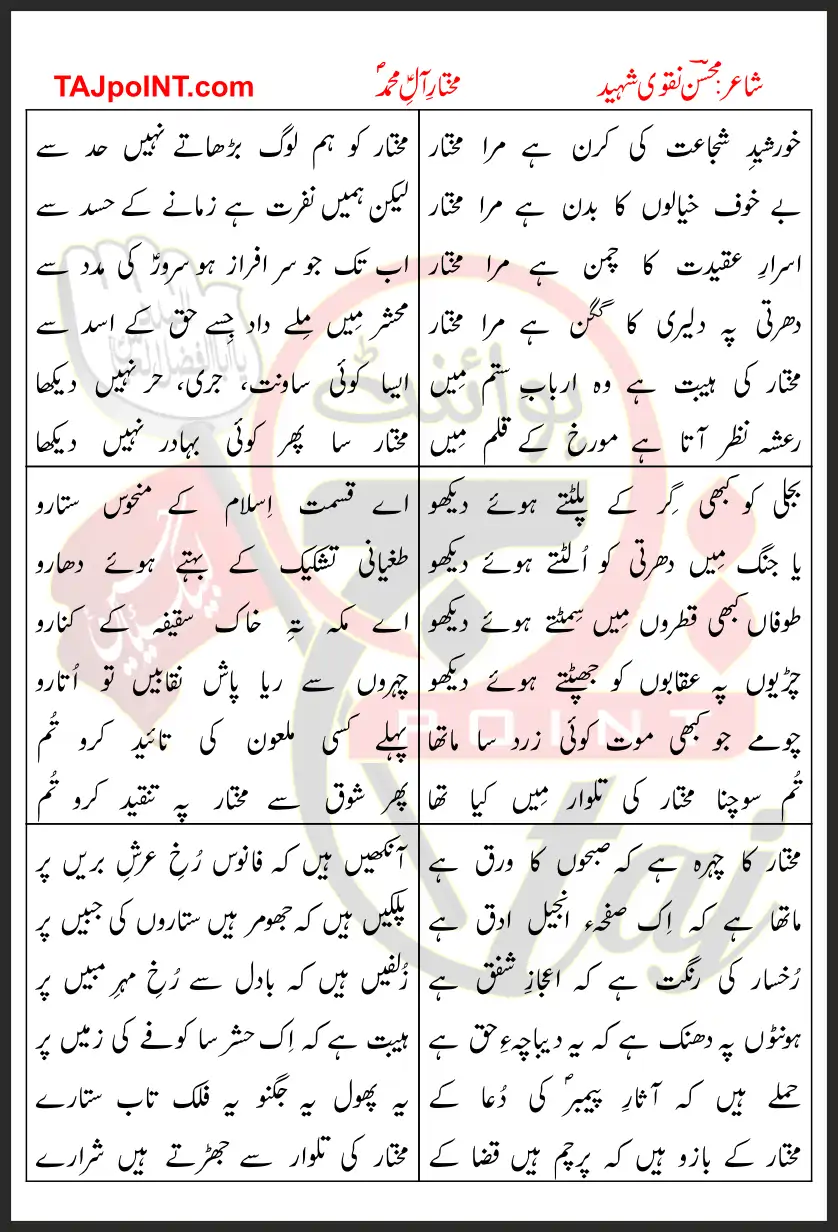 شاعر: محسنؔ نقوی شہید
مختارِ آلِ محمدؐ
TAJpoINT.com
خورشیدِ شجاعت کی کرن ہے مرا مختار
بے خوف خیالوں کا بدن ہے مرا مختار
اسرارِ عقیدت کا چمن ہے مرا مختار
دھرتی پہ دلیری کا گگن ہے مرا مختار
مختار کی ہیبت ہے وہ اربابِ ستم مِیں
رعشہ نظر آتا ہے مورخ کے قلم مِیں
مختار کو ہم لوگ بڑھاتے نہیں حد سے
لیکن ہمیں نفرت ہے زمانے کے حسد سے
اب تک جو سر افراز ہو سرورؑ کی مدد سے
محشر مِیں مِلے داد جِسے حق کے اسد سے
ایسا کوئی ساونت، جری، حر نہیں دیکھا
مختار سا پھر کوئی بہادر نہیں دیکھا
بجلی کو کبھی گِر کے پلٹتے ہوئے دیکھو
یا جنگ مِیں دھرتی کو اُلٹتے ہوئے دیکھو
طوفاں کبھی قطروں مِیں سِمٹتے ہوئے دیکھو
چڑیوں پہ عقابوں کو جھپٹتے ہوئے دیکھو
چومے جو کبھی موت کوئی زرد سا ماتھا
تُم سوچنا مختار کی تلوار مِیں کیا تھا
اے قسمت اِسلام کے منحوس ستارو
طغیانی تشکیک کے بہتے ہوئے دھارو
اے مکہ بتہِ خاک سقیفہ کے کنارو
چہروں سے ریا پاش نقابیں تو اُتارو
پہلے کسی ملعون کی تائید کرو تُم
پھر شوق سے مختار پہ تنقید کرو تُم
مختار کا چہرہ ہے کہ صبحوں کا ورق ہے
ماتھا ہے کہ اِک صفحۂ انجیل ادق ہے
رُخسار کی رنگت ہے کہ اعجازِ شفق ہے
ہونٹوں پہ دھنک ہے کہ یہ دیباچۂ حق ہے
حملے ہیں کہ آثارِ پیمبرؐ کی دُعا کے
مختار کے بازو ہیں کہ پرچم ہیں قضا کے
آنکھیں ہیں کہ فانوس رُخِ عرشِ بریں پر
پلکیں ہیں کہ جھومر ہیں ستاروں کی جبیں پر
زُلفیں ہیں کہ بادل سے رُخِ مہرِ مبیں پر
ہیبت ہے کہ اِک حشر سا کوفے کی زمیں پر
یہ پھول یہ جگنو یہ فلک تاب ستارے
مختار کی تلوار سے جھڑتے ہیں شرارے
پوائنٹ
POINT
Taj